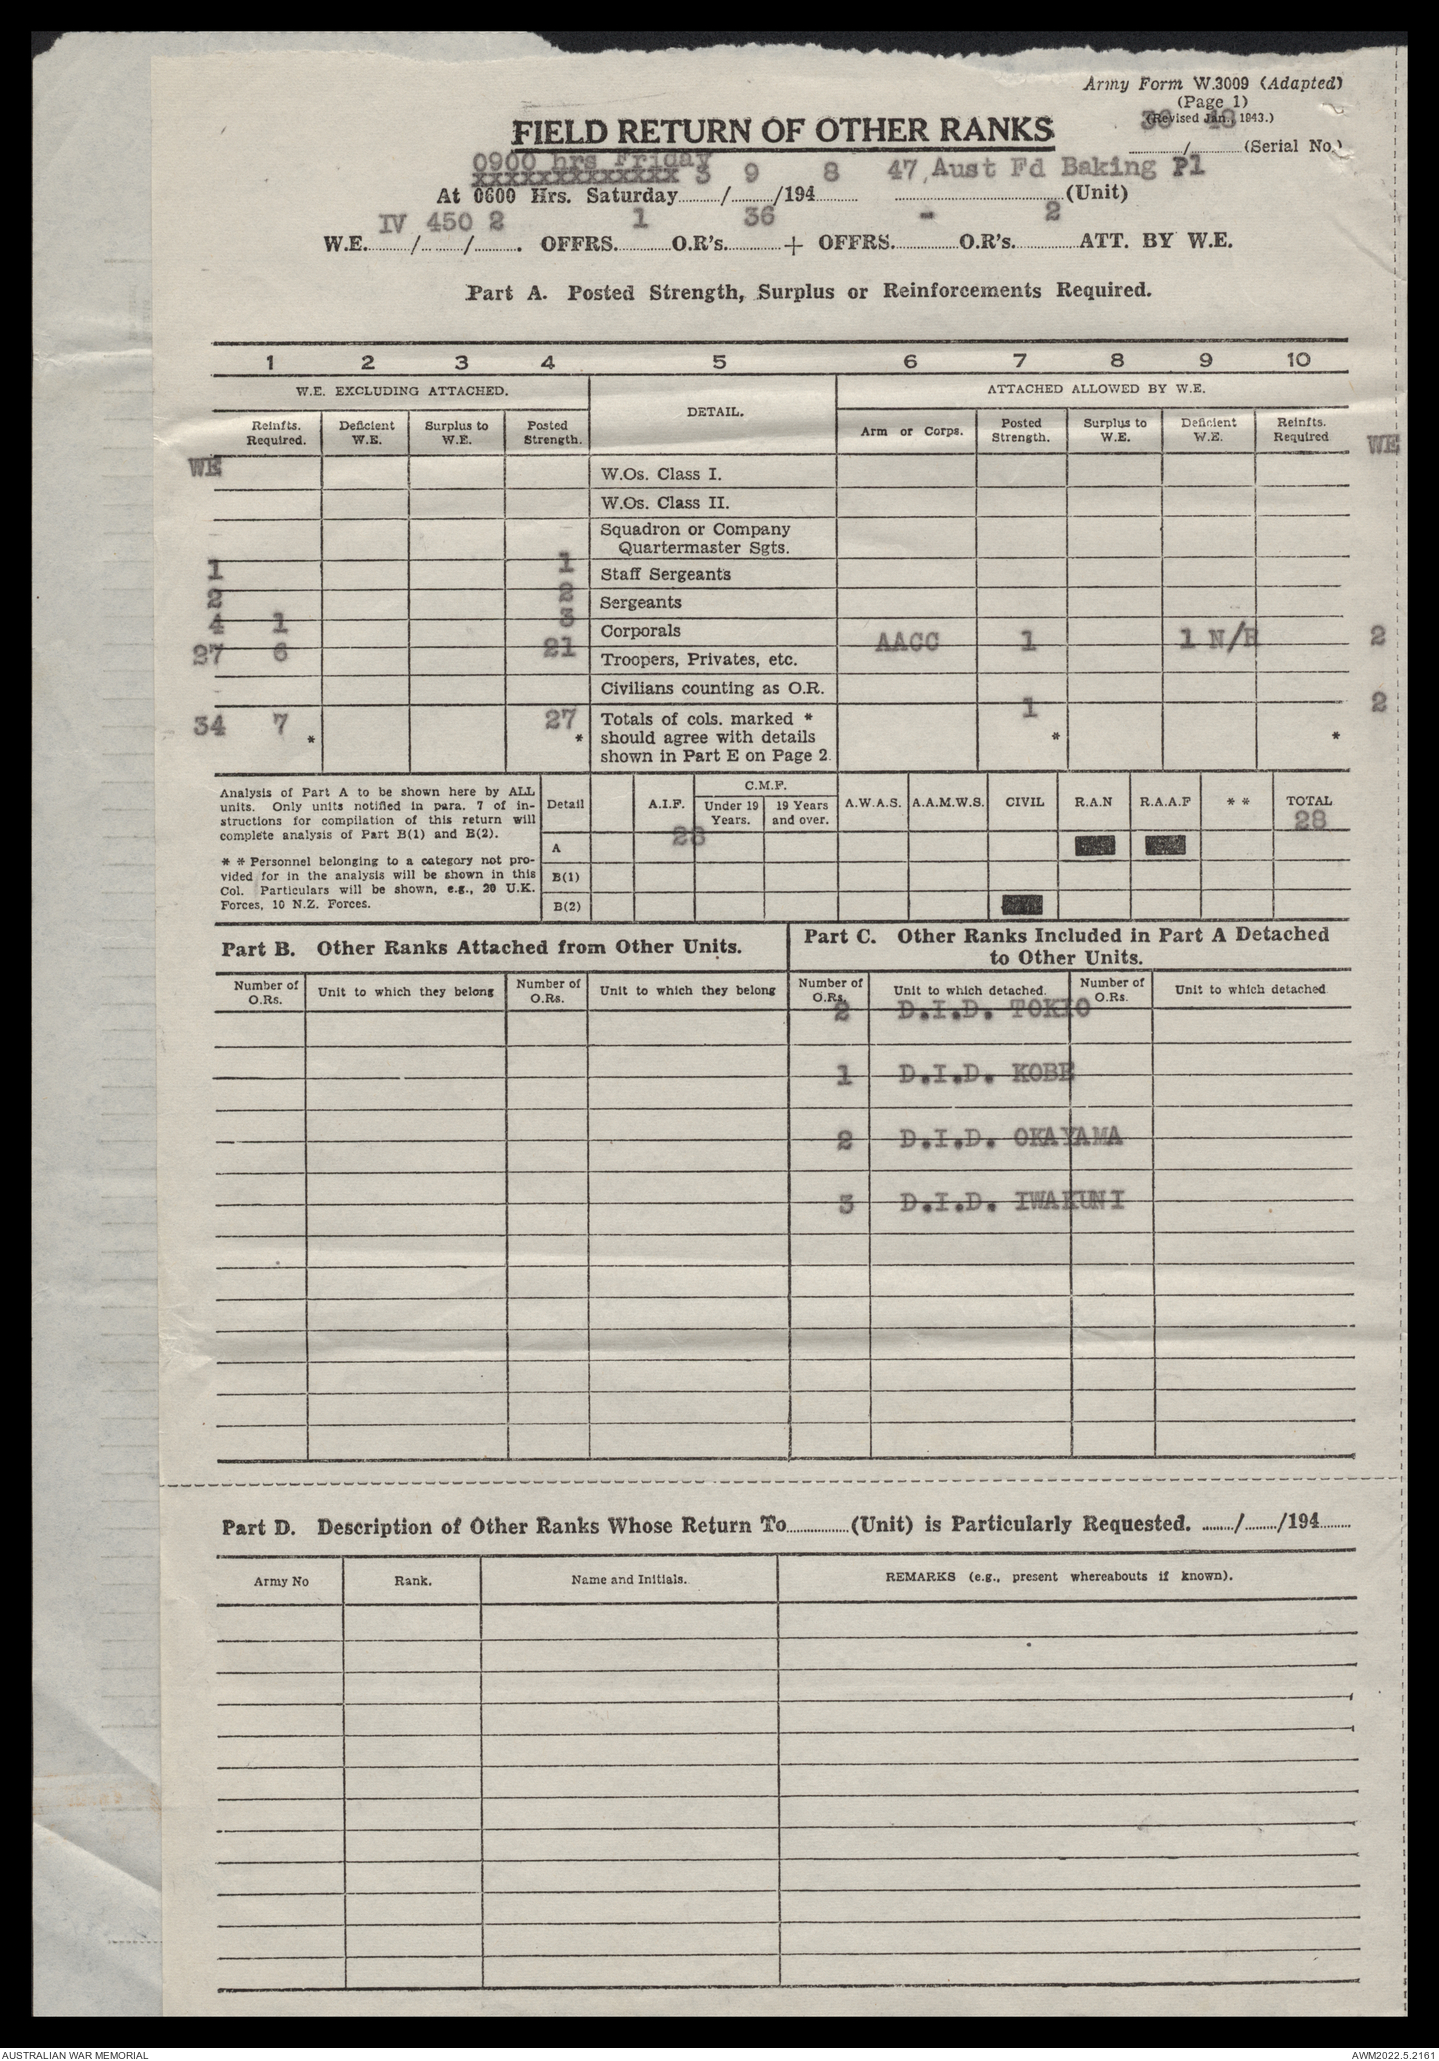 Army Form W.3009 (Adapted)
(Page 1)
(Revised Jan., 1943.)
36 48
FIELD RETURN OF OTHER RANKS
........../.......... (Serial No.)
0900 hrs Friday
xxxxxxxxxxxxx 3 9 8 47 Aust Fd Baking Pl
At 0600 Hrs. Saturday......../......../194........ ................(Unit)
IV 450 2 1 36 - 2
W.E......../......../......... OFFRS.........O.R's.........+ OFFRS.........O.R's.........ATT. BY W.E.
Part A. Posted Strength, Surplus or Reinforcements Required.
1 2 3 4 5 6 7 8 9 10
W.E. EXCLUDING ATTACHED. DETAIL. ATTACHED ALLOWED BY W.E.
Reinfts. Required. Deficient W.E. Surplus to W.E. Posted Strength. Arm or Corps. Posted Strength. Surplus to W.E. Deficient W.E. Reinfts. Required
WE WE
W.Os. Class I.
W.Os. Class II.
Squadron or Company
Quartermaster Sgts.
1 1 Staff Sergeants
2 2 Sergeants
4 1 3 Corporals
27 6 21 Troopers, Privates, etc. AACC 1 1 N/R 2
Civilians counting as O.R.
34 7 * 27 * Totals of cols. marked * 1 * * 2
should agree with details
shown in Part E on Page 2.
Analysis of Part A to be shown here by ALL
units. Only units notified in para. 7 of in-
structions for compilation of this return will
complete analysis of Part B(1) and B(2).
* * Personnel belonging to a category not pro-
vided for in the analysis will be shown in this
Col. Particulars will be shown, e.g., 20 U.K.
Forces, 10 N.Z. Forces.
Detail A.I.F. C.M.F. Under 19 Years. 19 Years and over. A.W.A.S. A.A.M.W.S. CIVIL R.A.N R.A.A.F * * TOTAL
A 28 28
B(1)
B(2)
Part B. Other Ranks Attached from Other Units.
Part C. Other Ranks Included in Part A Detached
to Other Units.
Number of O.Rs. Unit to which they belong Number of O.Rs. Unit to which they belong Number of O.Rs. Unit to which detached. Number of O.Rs. Unit to which detached
2 D.I.D. TOKIO
1 D.I.D. KOBE
2 D.I.D. OKAYAMA
3 D.I.D. IWAKUNI
Part D. Description of Other Ranks Whose Return To.............(Unit) is Particularly Requested. ......../......../194........
Army No Rank. Name and Initials. REMARKS (e.g., present whereabouts if known).
AUSTRALIAN WAR MEMORIAL
AWM2022.5.2161